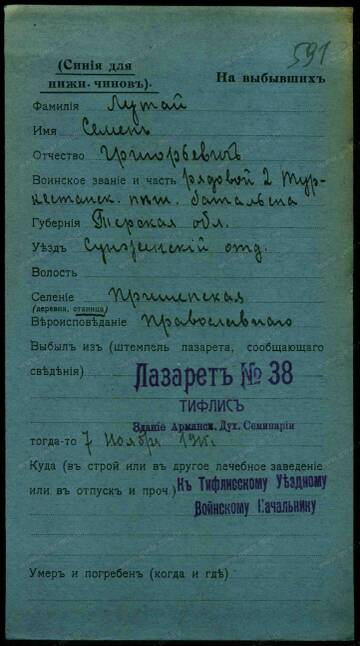 591
(Синія для
нижн. чиновъ).
На выбывшихъ
Фамилія Лутай
Имя Семенъ
Отчество Григорьевичъ
Воинское званіе и часть рядовой 2 Тур-
кестанск. батальона
Губернія Терская обл.
Уѣздъ Сунженскій отд.
Волость
Селеніе
(деревня, станица)
Вѣроисповѣданіе Православнаго
Выбылъ изъ (штемпель лазарета, сообщающаго
свѣдѣнія)
Лазаретъ № 38
ТИФЛИСЪ
Зданіе Армянск. Дух. Семинаріи
тогда-то 7 Ноября
Куда (въ строй или въ другое лечебное заведеніе
или въ отпускъ и проч.) Къ Тифлисскому Уѣздному
Воинскому Начальнику
Умеръ и погребенъ (когда и гдѣ)